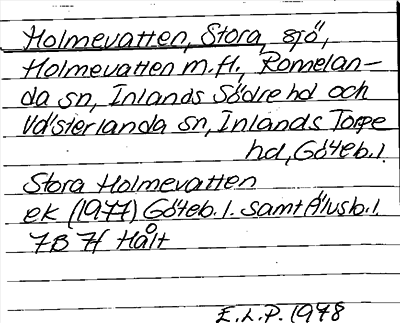 Holmevatten, Stora, sjö,
Holmevatten m.fl., Romelan-
da sn, Inlands Södre hd och
Västerlanda sn, Inlands Torpe
hd, Göteb.l.
Stora Holmevatten
ek (1977) Göteb.l. samt Älvsb.l.
7B 7f Hålt
E.L.P. 1978